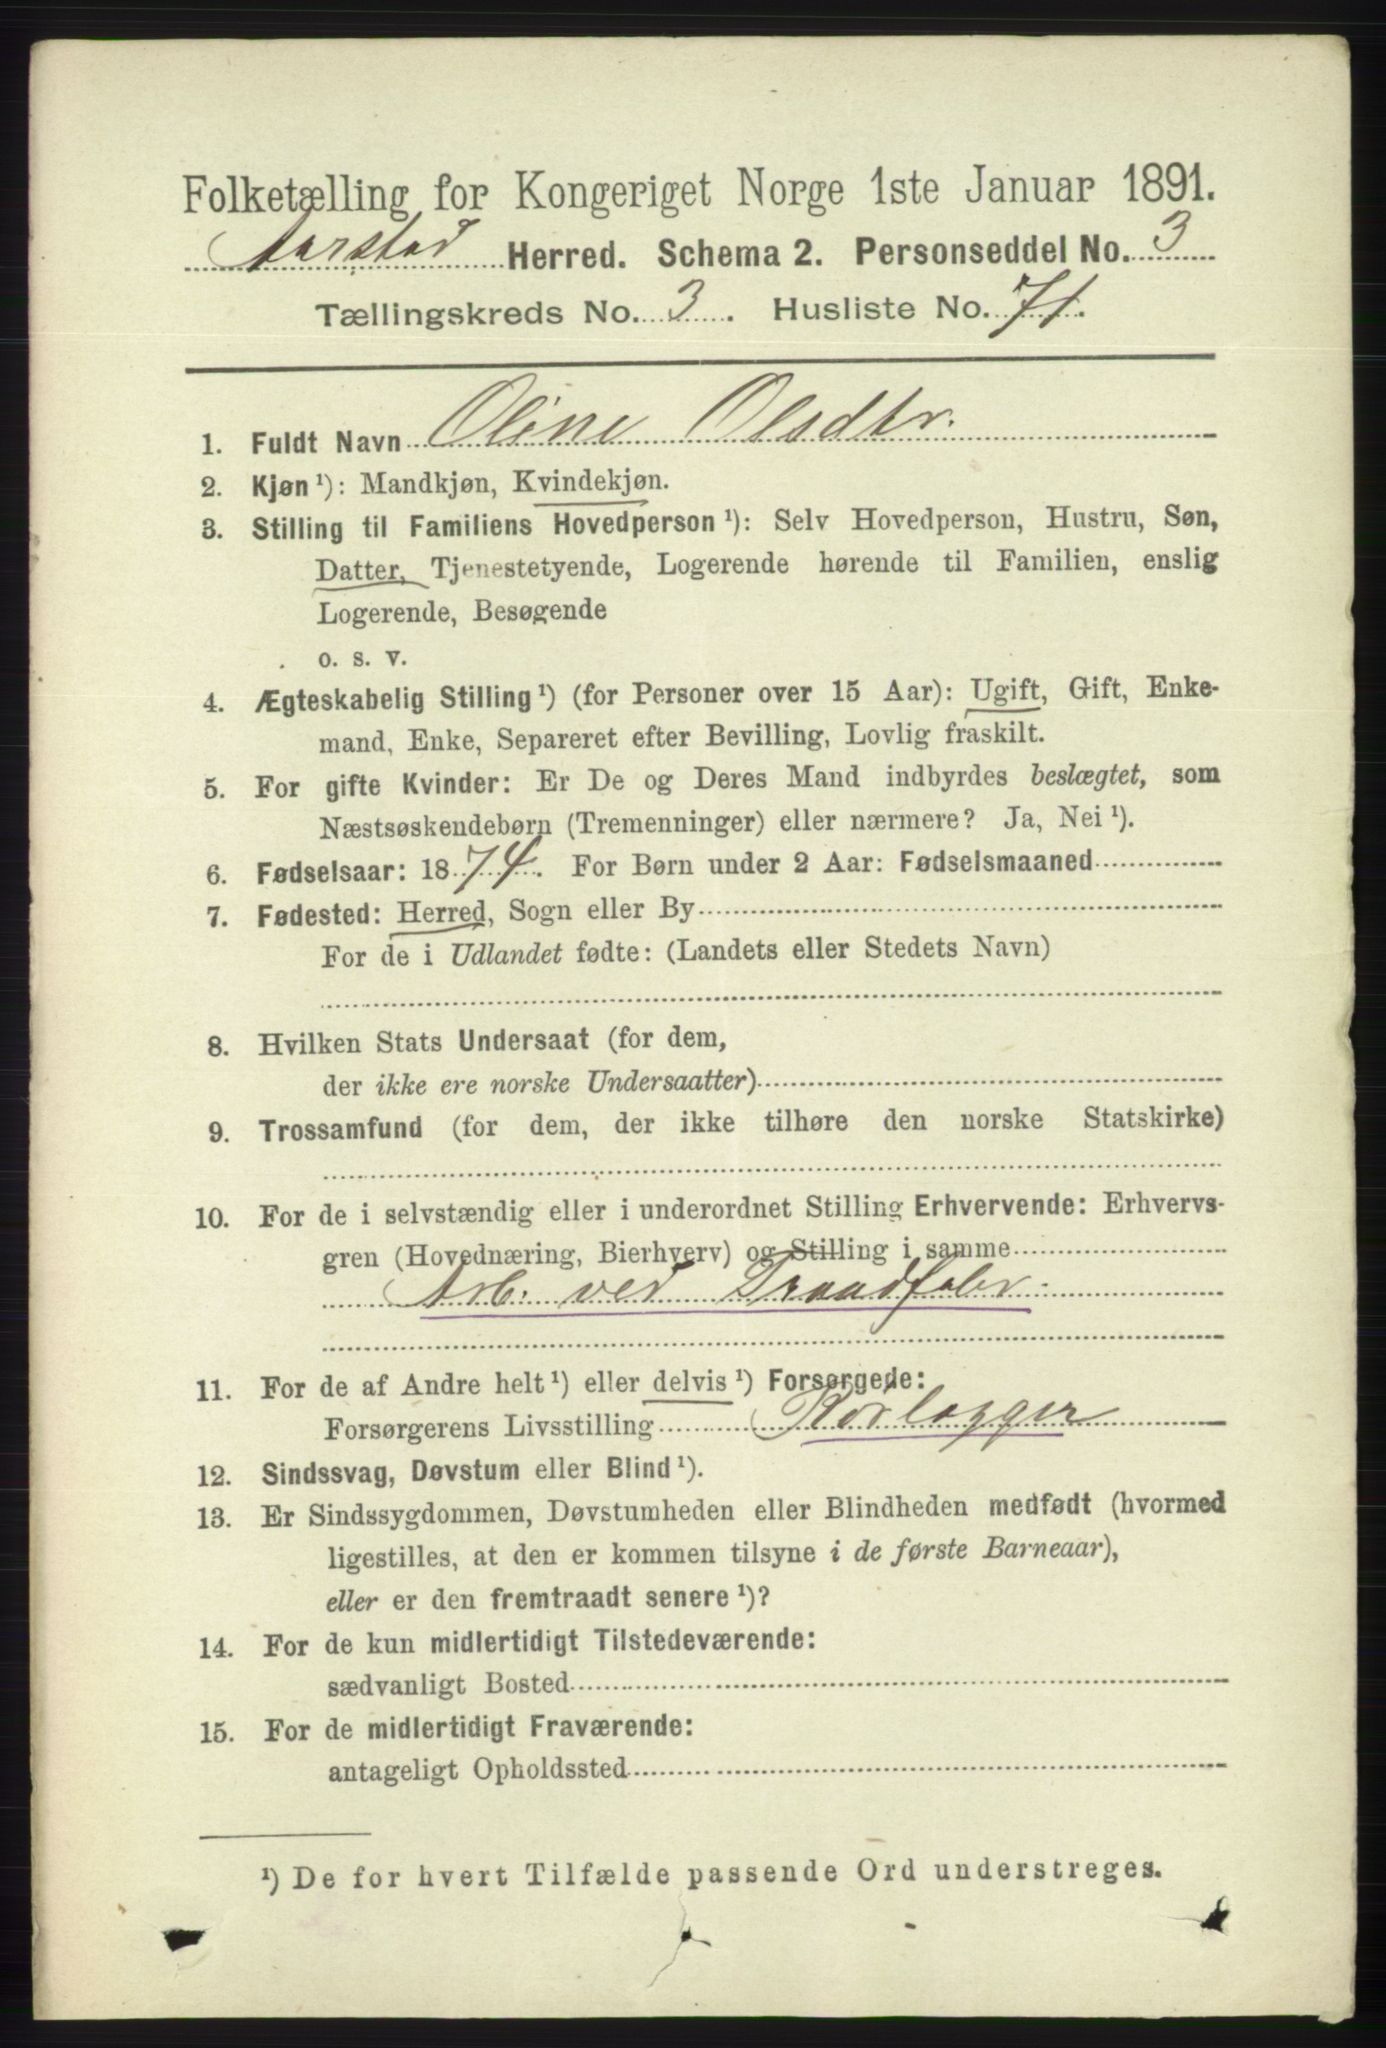 Folketælling for Kongeriget Norge 1ste Januar 1891.
Aarstad Herred. Schema 2. Personseddel No. 3
Tællingskreds No. 3. Husliste No. 71.
1. Fuldt Navn Oline Olsdtr.
2. Kjøn ¹): Mandkjøn, Kvindekjøn.
3. Stilling til Familiens Hovedperson ¹): Selv Hovedperson, Hustru, Søn,
Datter, Tjenestetyende, Logerende hørende til Familien, enslig
Logerende, Besøgende
o. s. v.
4. Ægteskabelig Stilling ¹) (for Personer over 15 Aar): Ugift, Gift, Enke-
mand, Enke, Separeret efter Bevilling, Lovlig fraskilt.
5. For gifte Kvinder: Er De og Deres Mand indbyrdes beslægtet, som
Næstsøskendebørn (Tremenninger) eller nærmere? Ja, Nei ¹).
6. Fødselsaar: 1874. For Børn under 2 Aar: Fødselsmaaned
7. Fødested: Herred, Sogn eller By
For de i Udlandet fødte: (Landets eller Stedets Navn)
8. Hvilken Stats Undersaat (for dem,
der ikke ere norske Undersaatter)
9. Trossamfund (for dem, der ikke tilhøre den norske Statskirke)
10. For de i selvstændig eller i underordnet Stilling Erhvervende: Erhvervs-
gren (Hovednæring, Bierhverv) og Stilling i samme
Arb. ved Traadfabr.
11. For de af Andre helt ¹) eller delvis ¹) Forsørgede:
Forsørgerens Livsstilling Rørlægger
12. Sindssvag, Døvstum eller Blind ¹).
13. Er Sindssygdommen, Døvstumheden eller Blindheden medfødt (hvormed
ligestilles, at den er kommen tilsyne i de første Barneaar),
eller er den fremtraadt senere ¹)?
14. For de kun midlertidigt Tilstedeværende:
sædvanligt Bosted
15. For de midlertidigt Fraværende:
antageligt Opholdssted
¹) De for hvert Tilfælde passende Ord understreges.